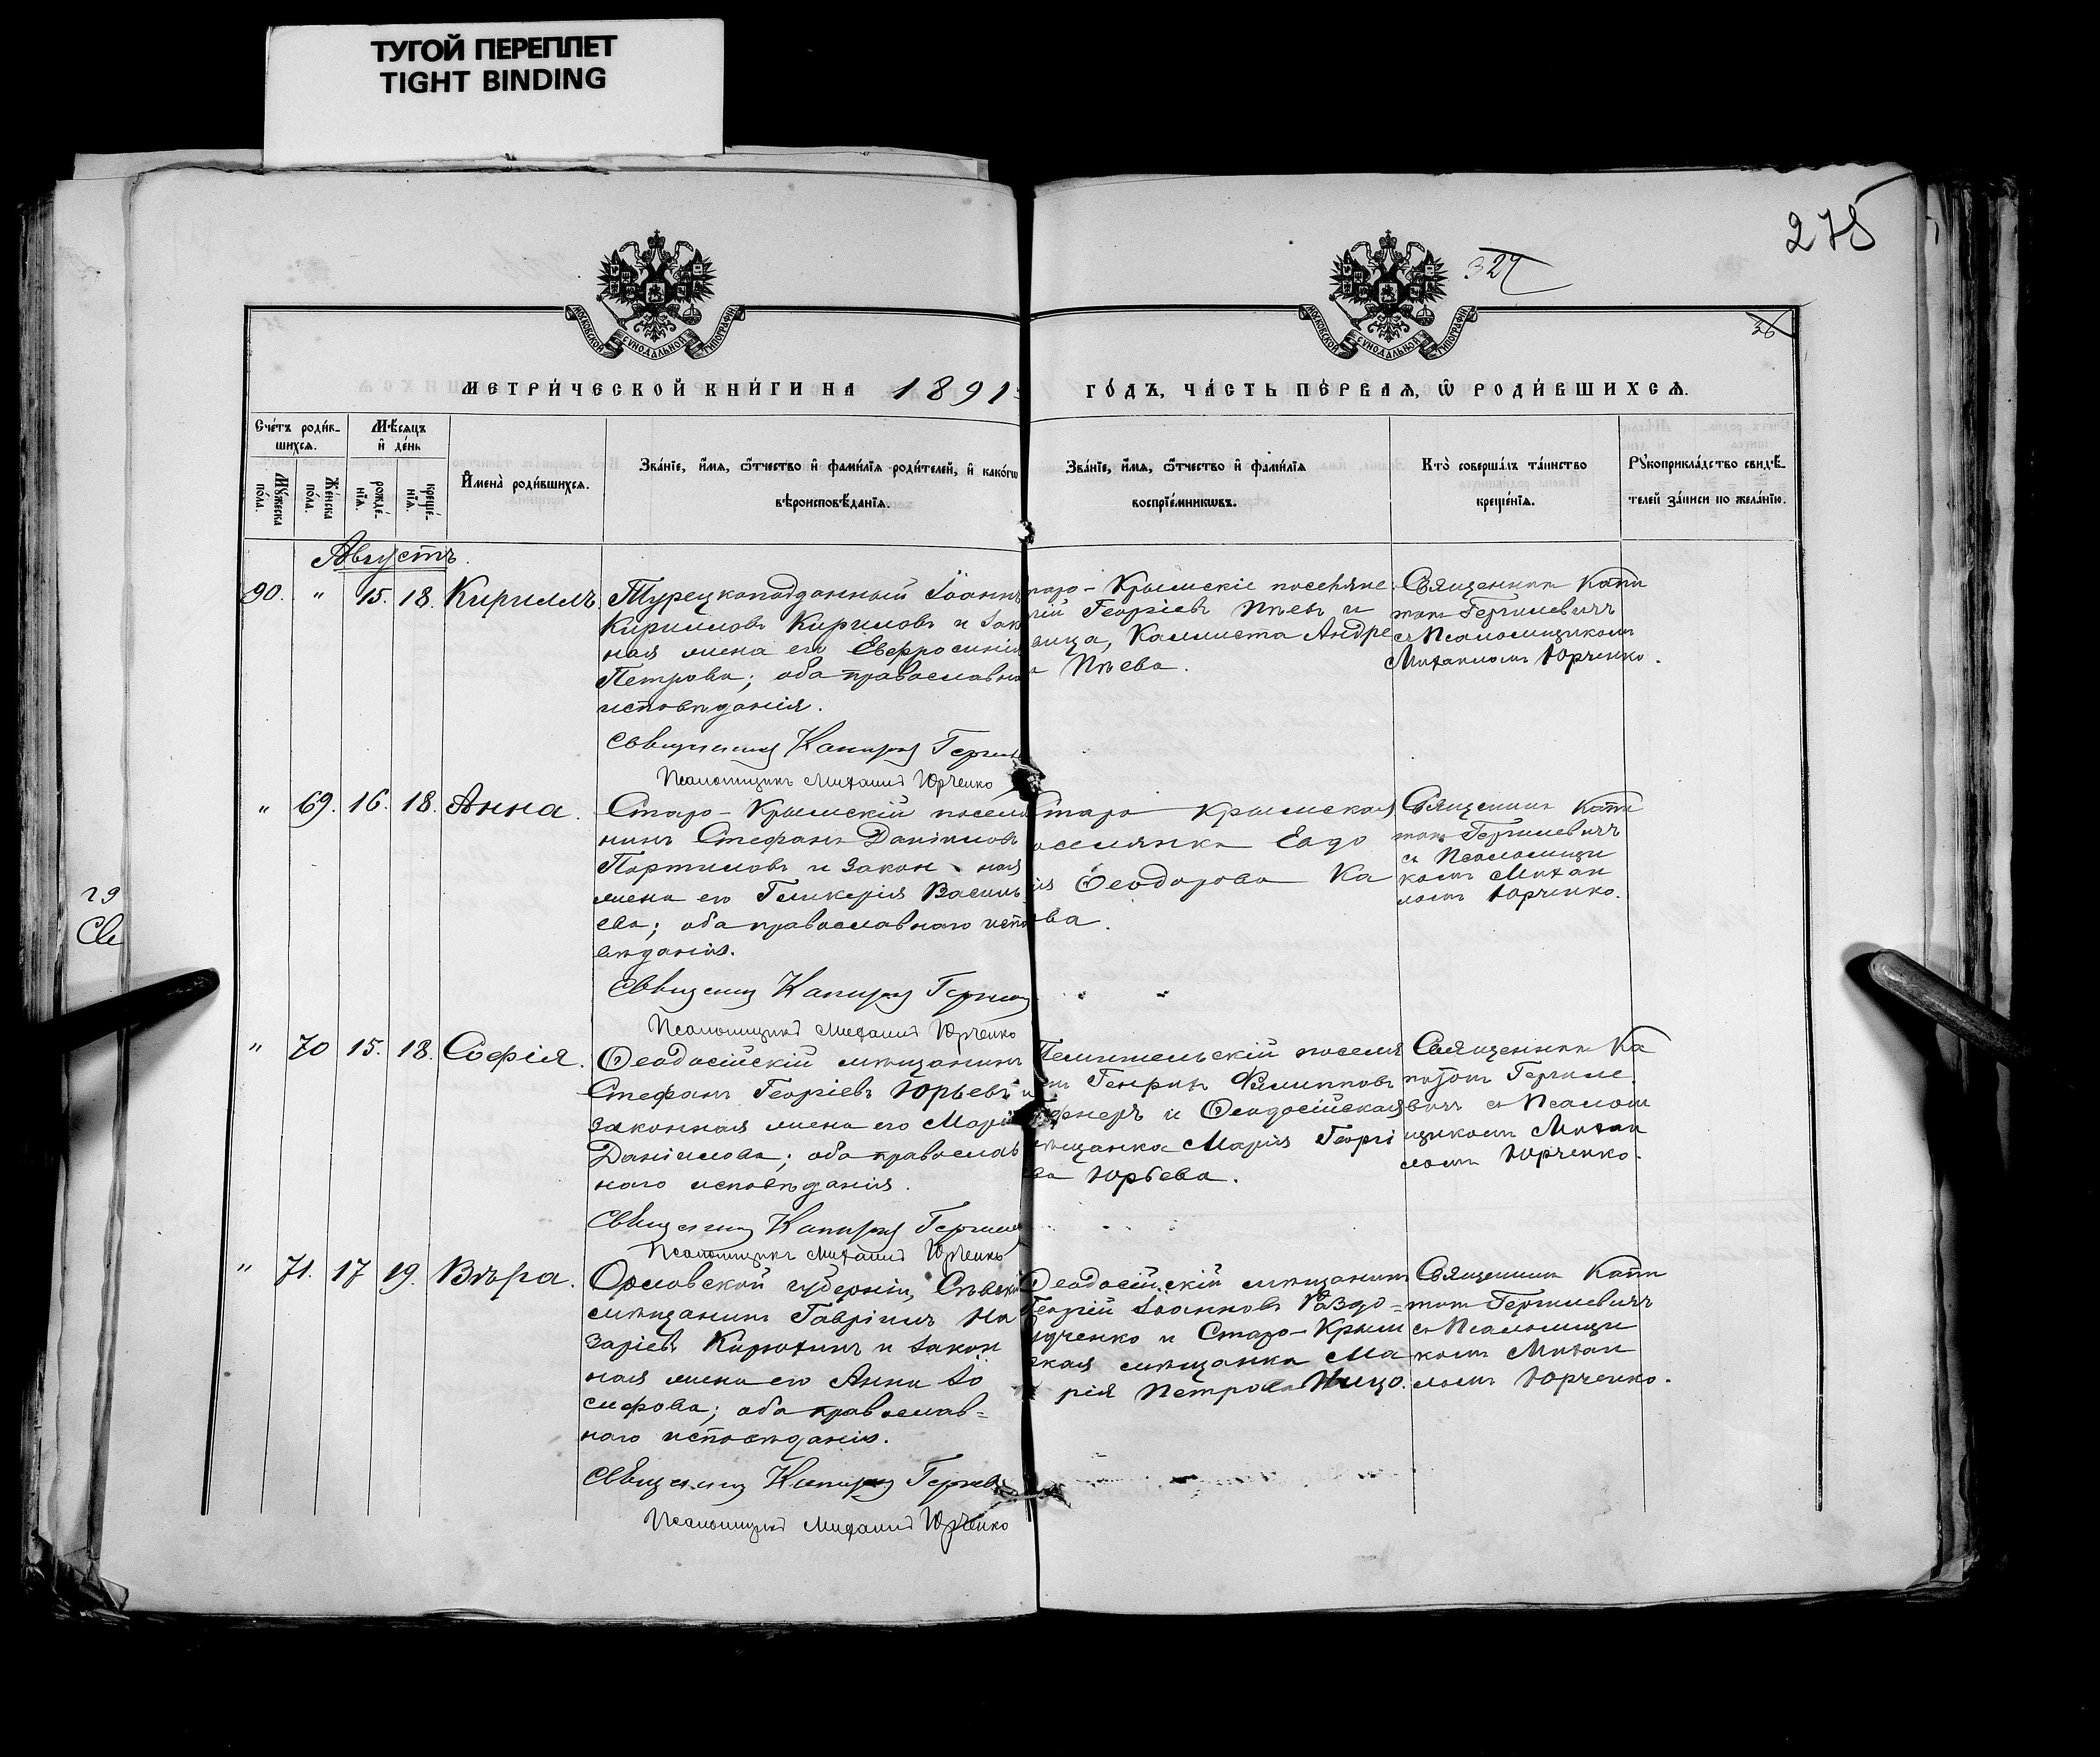 ТУГОЙ ПЕРЕПЛЕТ
TIGHT BINDING
278
327
36
МОСКОВСКОЙ СѴНОДАЛЬНОЙ ТИПОГРАФІИ
МОСКОВСКОЙ СѴНОДАЛЬНОЙ ТИПОГРАФІИ
МЕТРИ́ЧЕСКОЙ КНИ́ГИ НА 1891
ГО́ДЪ, ЧА́СТЬ ПЕ́РВАѦ, Ѽ РОДИ́ВШИХСѦ.
Сче́тъ роди́в-
шихсѧ.
Мѣ́сѧцъ
и҆ де́нь
Мꙋ́жеска по́ла.
Же́нска по́ла.
рожде́-
нїѧ.
креще́-
нїѧ.
И҆мена̀ роди́вшихсѧ.
Зва́нїе, и҆́мѧ, ѻ҆́тчество и҆ фами́лїѧ роди́телей, и҆ како́гѡ
вѣроисповѣ́данїѧ.
Зва́нїе, и҆́мѧ, ѻ҆́тчество и҆ фами́лїѧ
воспрїе́мникѡвъ.
Кто̀ соверша́лъ та́инство
креще́нїѧ.
Рꙋкоприкла́дство свидѣ́-
телей за́писи по жела́нїю.
Августъ.
90. " 15. 18. Кириллъ.
Турецкоподданный Іоаннъ
Кирилловъ Кириловъ и зак
ная жена его Евфросинія
Петрова; оба православна
исповѣданія.
Священникъ Капитонъ
Псаломщикъ Михаилъ Юрченко
таро-Крымскіе поселяне
гій Георгіевъ Пѣевъ и
вица, Каллиста Андре
а Пѣева.
Священникъ Капи
тонъ Гергилевичъ
съ Псаломщикомъ
Михаиломъ Юрченко.
" 69. 16. 18. Анна.
Старо-Крымскій поселя
нинъ Стефанъ Даніиловъ
Портиловъ и закон ная
жена его Гликерія Василь
ева; оба православнаго испо
вѣданія.
Священникъ Капитонъ
Псаломщикъ Михаилъ Юрченко
Старо Крымская
оселянка Евдо
ія Ѳеодорова Ка
ова.
Священникъ Капи
тонъ Гергилевичъ
съ Псаломщи
комъ Михаи
ломъ Юрченко.
" 70 15. 18. Софія.
Ѳеодосійскій мѣщанинъ
Стефанъ Георгіевъ Юрьевъ и
законная жена его Марія
Даніилова; оба православ
наго исповѣданія.
Священникъ Капитонъ
Псаломщикъ Михаилъ Юрченко
поселя
Генрихъ Филипповъ
и Ѳеодосійская
мѣщанка Марія Георгі
ва Юрьева.
Священникъ Ка
питонъ Гергиле
вичъ съ Псалом
щикомъ Михаи
ломъ Юрченко.
" 71. 17 19. Вѣра.
Орловской губерніи, Сѣвскій
мѣщанинъ Гавріилъ На
заріевъ Кирюхинъ и закон
ная жена его Анна Іо
сифова; оба православ=
наго исповѣданія.
Священникъ Капитонъ
Псаломщикъ Михаилъ Юрченко
Ѳеодосійскій мѣщанинъ
Георгій Іоанновъ Раздо=
дченко и Старо-Крым
ская мѣщанка Ма
рія Петрова Ницо.
Священникъ Капи
тонъ Гергилевичъ
съ Псаломщи
комъ Михаи
ломъ Юрченко.